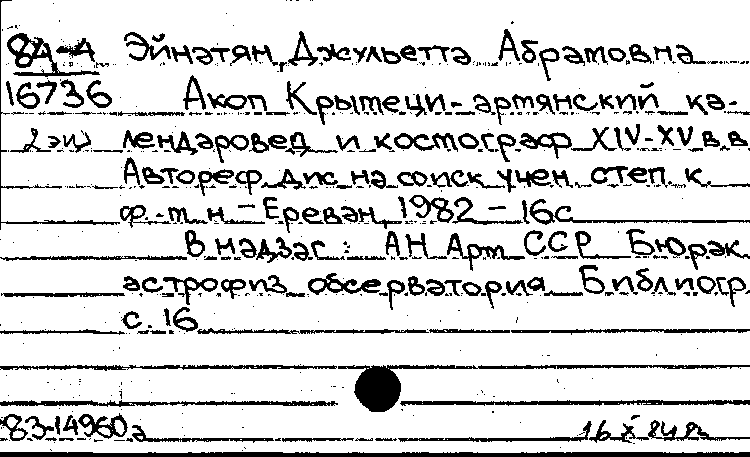 84-4 Эйнатян, Джульетта Абрамовна
16736 Акоп Крымеци-армянский ка-
2 экз лендаровед и космограф XIV-XV в.в.
Автореф. дис. на соиск учен. степ. к.
ф.-м. н. - Ереван, 1982 - 16с
В надзаг: АН Арм ССР. Бюрак.
астрофиз. обсерватория. Библиогр.
с. 16
83-14960а 16 X 84